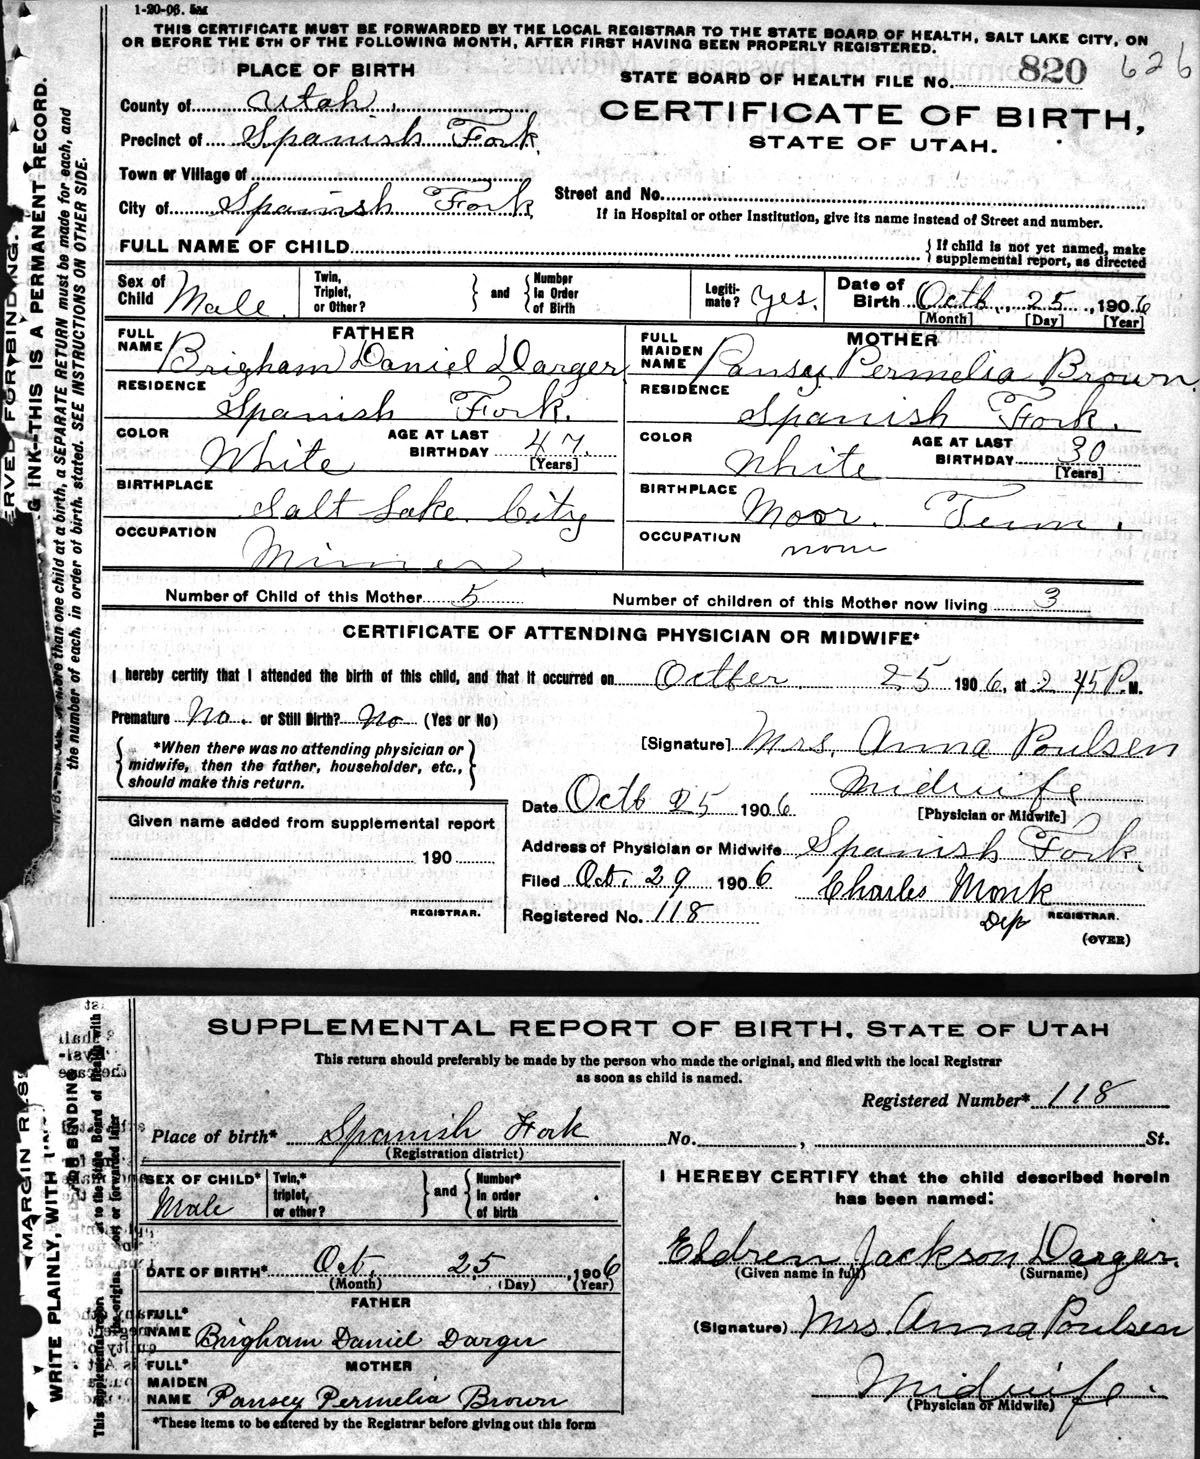 1-20-06. 5M
THIS CERTIFICATE MUST BE FORWARDED BY THE LOCAL REGISTRAR TO THE STATE BOARD OF HEALTH, SALT LAKE CITY, ON
OR BEFORE THE 5TH OF THE FOLLOWING MONTH, AFTER FIRST HAVING BEEN PROPERLY REGISTERED.
PLACE OF BIRTH
STATE BOARD OF HEALTH FILE NO. 820 626
County of Utah.
CERTIFICATE OF BIRTH,
Precinct of Spanish Fork.
STATE OF UTAH.
Town or Village of
Street and No.
City of Spanish Fork
If in Hospital or other Institution, give its name instead of Street and number.
FULL NAME OF CHILD
If child is not yet named, make
supplemental report, as directed
Sex of Child Male. Twin, Triplet, or Other? and Number in Order of Birth Legiti-mate? yes. Date of Birth Octb. 25, 1906
[Month] [Day] [Year]
FATHER MOTHER
FULL NAME Brigham Daniel Darger FULL MAIDEN NAME Pansy Permelia Brown.
RESIDENCE Spanish Fork. RESIDENCE Spanish Fork.
COLOR White AGE AT LAST BIRTHDAY 47. [Years] COLOR White AGE AT LAST BIRTHDAY 30 [Years]
BIRTHPLACE Salt Lake City BIRTHPLACE Moor.
OCCUPATION Minner. OCCUPATION none
Number of Child of this Mother 5 Number of children of this Mother now living 3
CERTIFICATE OF ATTENDING PHYSICIAN OR MIDWIFE*
I hereby certify that I attended the birth of this child, and that it occurred on Octber. 25 1906, at 2 45 P. M.
Premature No. or Still Birth? No (Yes or No)
*When there was no attending physician or
midwife, then the father, householder, etc.,
should make this return.
[Signature] Mrs. Anna Poulsen
Midwife
[Physician or Midwife]
Date Octb 25 1906
Given name added from supplemental report
190
REGISTRAR.
Address of Physician or Midwife Spanish Fork.
Filed Oct. 29 1906 Charles Monk
Registered No. 118 Dep REGISTRAR.
(OVER)
SUPPLEMENTAL REPORT OF BIRTH, STATE OF UTAH
This return should preferably be made by the person who made the original, and filed with the local Registrar
as soon as child is named.
Registered Number* 118
Place of birth* Spanish Fork No. , St.
(Registration district)
SEX OF CHILD* Male Twin,* triplet, or other? and Number* in order of birth
I HEREBY CERTIFY that the child described herein
has been named:
Eldren Jackson Darger.
(Given name in full) (Surname)
DATE OF BIRTH* Oct. 25, 1906
(Month) (Day) (Year)
FATHER
FULL* NAME Brigham Daniel Darger
(Signature) Mrs. Anna Poulsen
MOTHER
FULL* MAIDEN NAME Pansey Permelia Brown
Midwife.
(Physician or Midwife)
*These items to be entered by the Registrar before giving out this form
INK--THIS IS A PERMANENT RECORD.
more than one child at a birth, a SEPARATE RETURN must be made for each, and
the number of each, in order of birth, stated. SEE INSTRUCTIONS ON OTHER SIDE.
WRITE PLAINLY, WITH